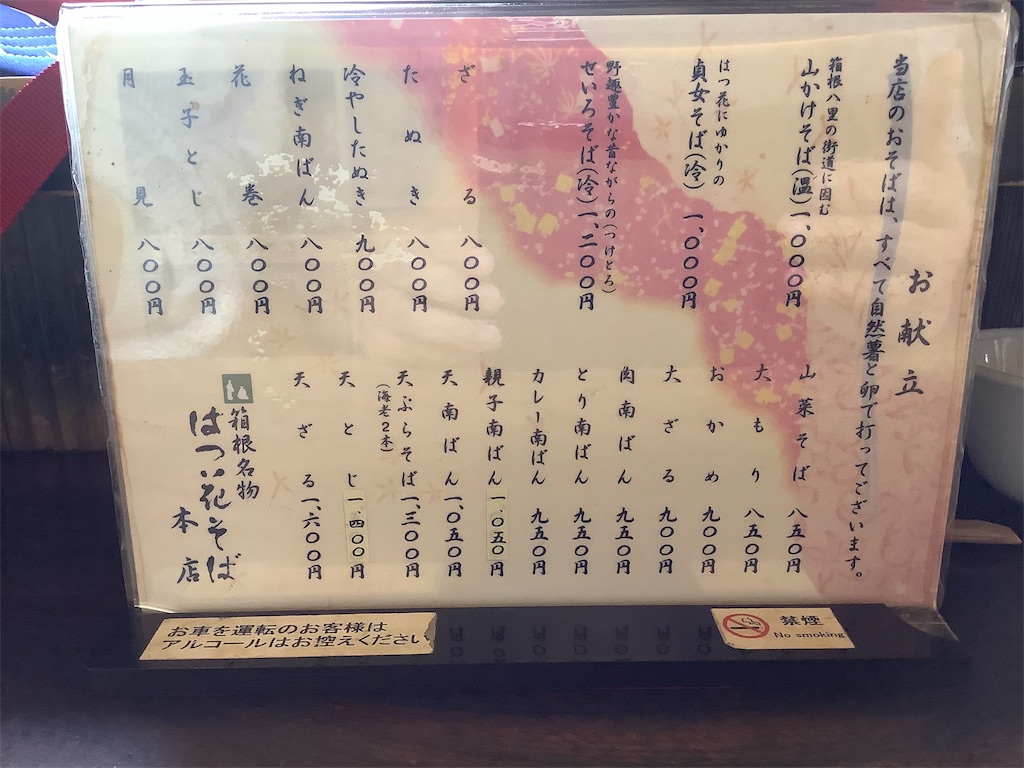 お献立
当店のおそばは、すべて自然薯と卵で打ってございます。
箱根八里の街道に因む
山かけそば(温)一、〇〇〇円
はつ花にゆかりの
貞女そば(冷)一、〇〇〇円
野趣豊かな昔ながらの(つけとろ)
せいろそば(冷)一、二〇〇円
ざる 八〇〇円
たぬき 八〇〇円
冷やしたぬき 九〇〇円
ねぎ南ばん 八〇〇円
花巻 八〇〇円
玉子とじ 八〇〇円
月見 八〇〇円
山菜そば 八五〇円
大もり 八五〇円
おかめ 九〇〇円
大ざる 九〇〇円
肉南ばん 九五〇円
とり南ばん 九五〇円
カレー南ばん 九五〇円
親子南ばん 一、〇五〇円
天南ばん 一、〇五〇円
天ぷらそば 一、三〇〇円
(海老2本)
天とじ 一、四〇〇円
天ざる 一、六〇〇円
箱根名物
はつ花そば
本店
お車を運転のお客様は
アルコールはお控えください
禁煙
No smoking